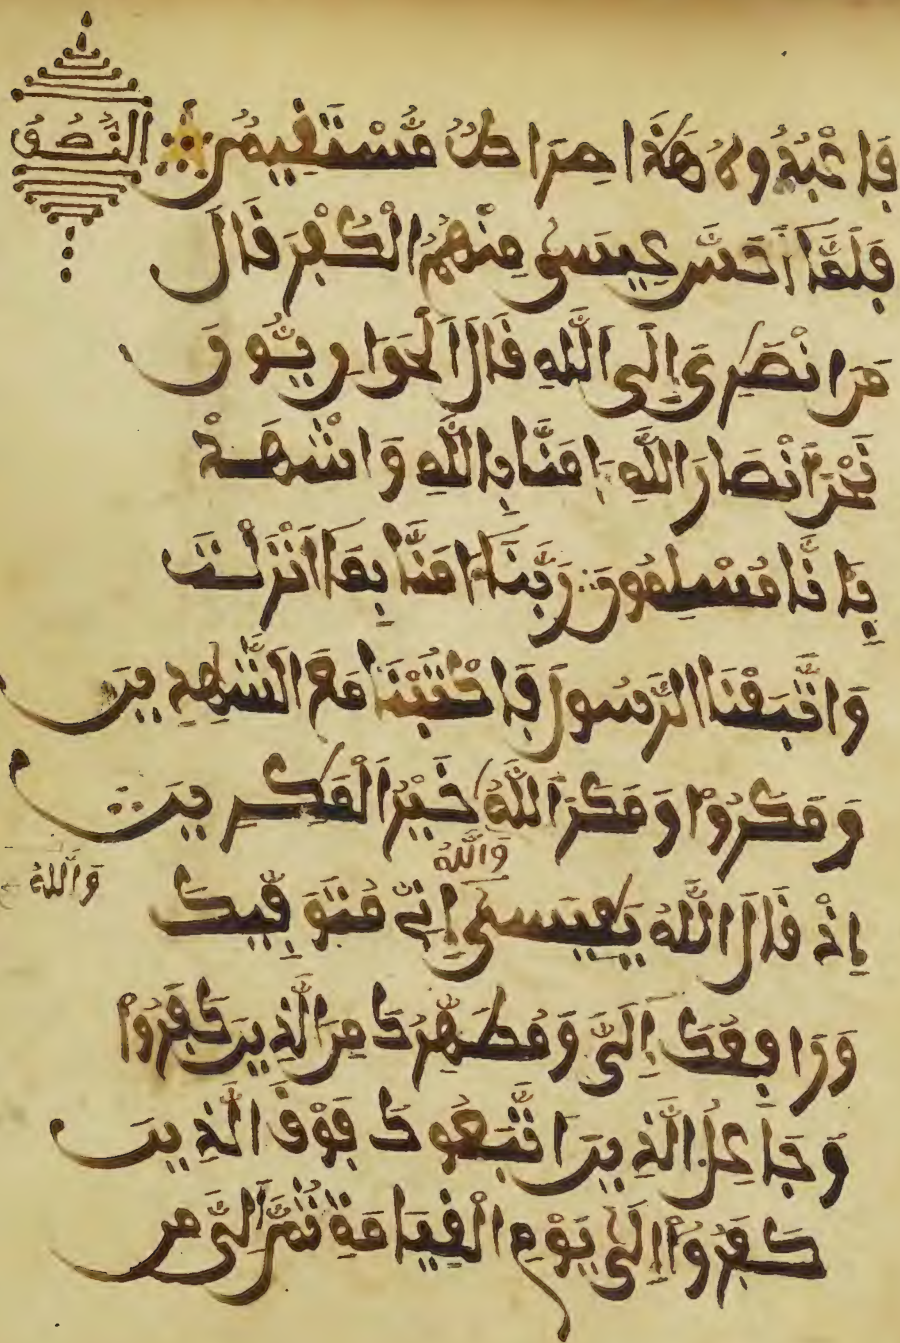 فَاعْبُدُوهُ هَٰذَا صِرَاطٌ مُّسْتَقِيمٌ النِّصْف
فَلَمَّا أَحَسَّ عِيسَىٰ مِنْهُمُ الْكُفْرَ قَالَ
مَنَ انْصَارِيَ إِلَى اللَّهِ قَالَ الْحَوَارِيُّونَ
نَحْنُ أَنْصَارُ اللَّهِ ءَامَنَّا بِاللَّهِ وَاشْهَدْ
بِأَنَّا مُسْلِمُونَ رَبَّنَا ءَامَنَّا بِمَا أَنْزَلْتَ
وَاتَّبَعْنَا الرَّسُولَ فَاكْتُبْنَا مَعَ الشَّٰهِدِينَ
وَمَكَرُوا وَمَكَرَ اللَّهُ خَيْرُ الْمَٰكِرِينَ
وَاللَّهُ
وَاللَّهُ
إِذْ قَالَ اللَّهُ يَٰعِيسَىٰ إِنِّي مُتَوَفِّيكَ
وَرَافِعُكَ إِلَيَّ وَمُطَهِّرُكَ مِنَ الَّذِينَ كَفَرُوا
وَجَاعِلُ الَّذِينَ اتَّبَعُوكَ فَوْقَ الَّذِينَ
كَفَرُوا إِلَىٰ يَوْمِ الْقِيَامَةِ ثُمَّ إِلَيَّ مَر